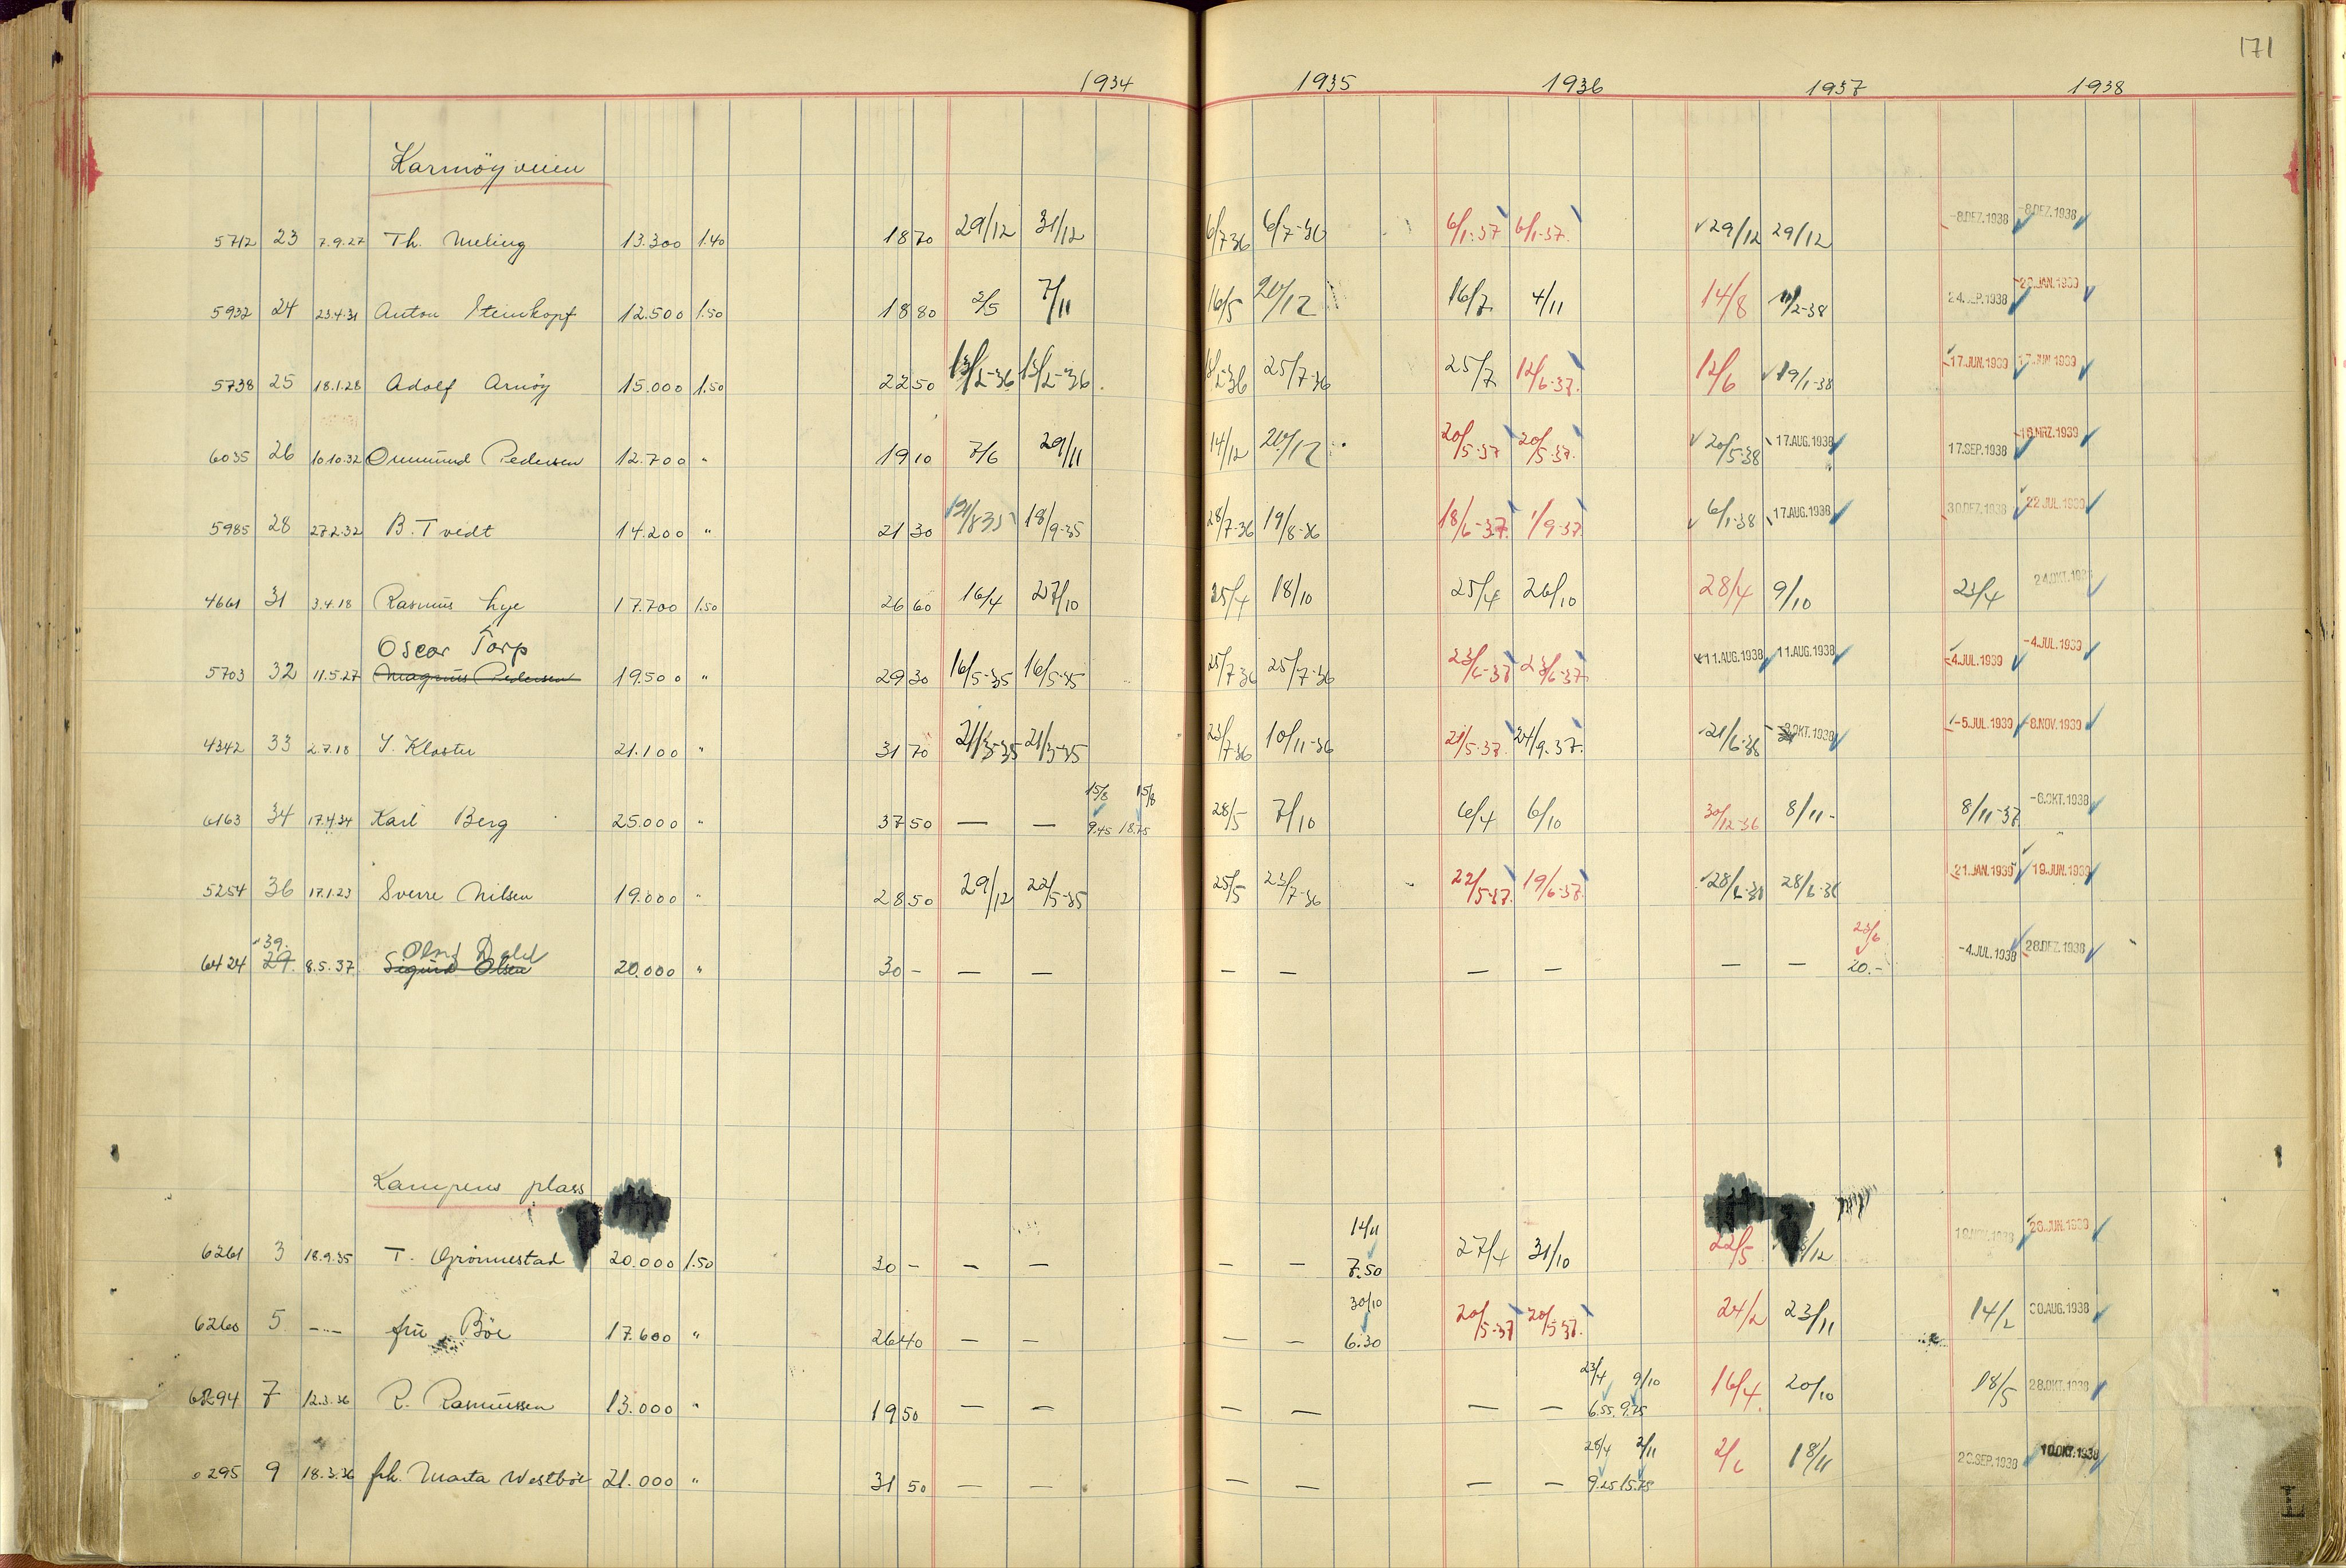 171
1934 1935 1936 1937 1938
Karmøyveien
5712 23 7.9.27 Th. Meling 13.300 1.40 18 70 29/12 31/12 6/7-36 6/7-36 6/1-37 6/1-37 29/12 29/12 -8.DEZ.1938 -8.DEZ.1938
5932 24 23.4.31 Anton Steinkopf 12.500 1.50 18 80 2/5 7/11 16/5 20/12 16/7 4/11 14/8 11/2-38 24.SEP.1938 JAN.1939
5738 25 18.1.28 Adolf Arnøy 15.000 1.50 22 50 13/2-36 13/2-36 25/7-36 25/7 12/6-37 12/6 19/1-38 17.JUN.1939 17.JUN.1939
6035 26 10.10.32 Ommund Pedersen 12.700 " 19 10 7/6 29/11 14/12 20/12 20/5-37 20/5-37 20/5-38 17.AUG.1938 17.SEP.1938 16.MRZ.1939
5985 28 27.2.32 B. Tvedt 14.200 " 21 30 18/9-35 28/7-36 19/8-36 18/6-37 1/9-37 6/1-38 17.AUG.1938 30.DEZ.1938 22.JUL.1939
4661 31 3.4.18 Rasmus Lye 17.700 1.50 26 60 16/4 27/10 25/4 18/10 25/4 26/10 28/4 9/10 23/4 24.OKT.1938
Oscar Torp
5703 32 11.5.27 Magnus Pedersen 19.500 " 29 30 16/5-35 16/5-35 25/7-36 25/7-36 23/6-37 23/6-37 11.AUG.1938 11.AUG.1938 -4.JUL.1939 -4.JUL.1939
4342 33 2.7.18 Kloster 21.100 " 31 70 21/3-35 21/3-35 23/7-36 10/11-36 21/5-37 24/9-37 21/6-38 OKT.1938 -5.JUL.1939 -8.NOV.1939
15/8 15/8
6163 34 17.4.34 Karl Berg 25.000 " 37 50 — — 9.45 18.75 28/5 7/10 6/4 6/10 30/12-36 8/11- 8/11-37 -6.OKT.1938
5254 36 17.1.23 Sverre Nilsen 19.000 " 28 50 29/12 22/5-35 25/5 23/7-36 22/5-37 19/6-37 28/6-38 28/6-38 21.JAN.1939 19.JUN.1939
39. 23/6
6424 29 8.5.37 Sigurd Olsen 20.000 " 30 - — — — — — — — — 20.- -4.JUL.1938 28.DEZ.1938
Kampens plass
14/11
6261 3 18.9.35 T. Grønnestad 20.000 1.50 30 - — — — — 7.50 27/4 31/10 22/5 /12 NOV.1938 JUN.1939
30/10
6260 5 -"- fru Böe 17.600 " 26 40 — — — — 6.30 20/5-37 20/5-37 24/2 23/11 14/2 30.AUG.1938
23/4 9/10
6294 7 12.3.36 R. Rasmussen 13.000 " 19 50 — — — — — — 6.55 9.75 16/4 20/10 18/5 28.OKT.1938
28/4 2/11
6295 9 18.3.36 frk. Marta Westböe 21.000 " 31 50 — — — — — — 9.25 15.75 2/6 18/11 SEP.1938 10.OKT.1938